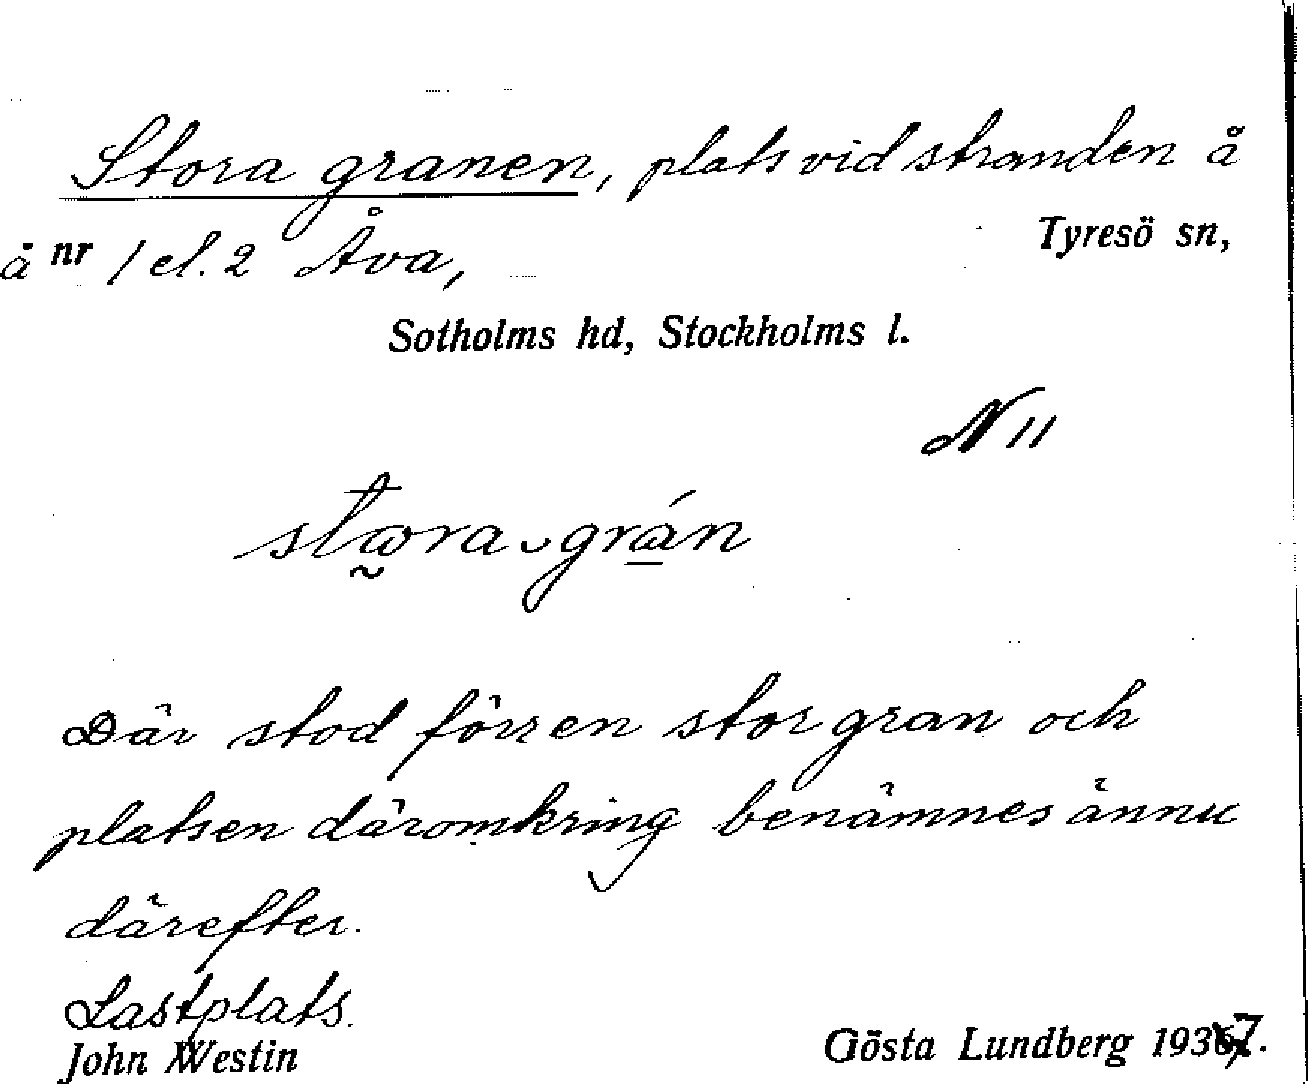 Stora granen, plats vid stranden å
å nr 1 el. 2 Åva,
Tyresö sn,
Sotholms hd, Stockholms l.
N 11
Där stod förr en stor gran och
platsen däromkring benämnes ännu
därefter.
Lastplats.
John Westin
Gösta Lundberg 1937.